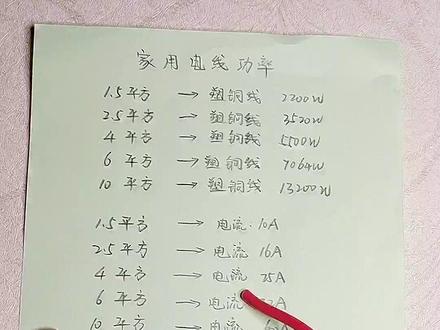 家用电线功率
1.5平方 → 塑铜线 2200W
2.5平方 → 塑铜线 3520W
4平方 → 塑铜线 5500W
6平方 → 塑铜线 7064W
10平方 → 塑铜线 13200W
1.5平方 → 电流 10A
2.5平方 → 电流 16A
4平方 → 电流 25A
6平方 → 电流
10平方 → 电流